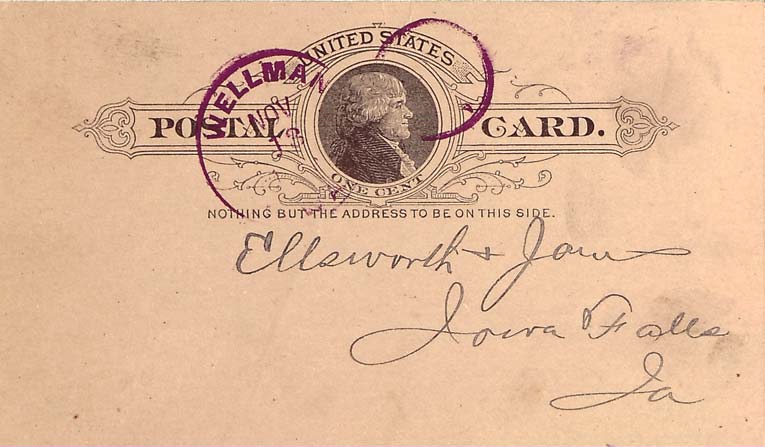 UNITED STATES
POSTAL CARD.
ONE CENT
WELLMAN
NOV
NOTHING BUT THE ADDRESS TO BE ON THIS SIDE.
Ellsworth + Jones
Iowa Falls
Ia